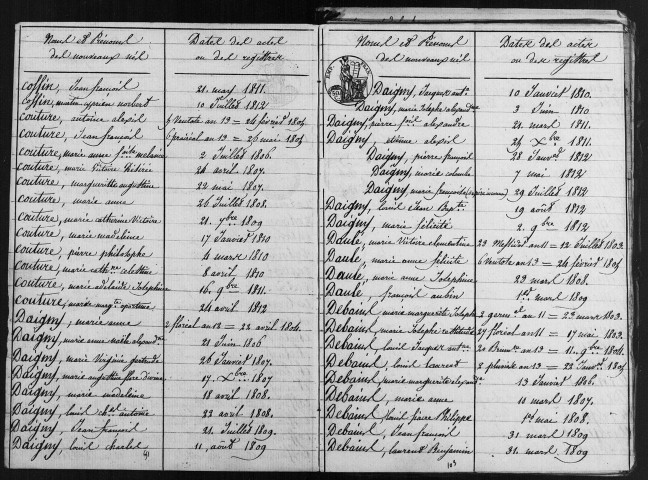 Noms et Prénoms
des nouveaux nés
Dates des actes
ou des registres
Coffin, Jean françois 21 mars 1811.
Coffin, martin cyprien norbert 10 Juillet 1812
Couture, antoine alexis 5 Ventose an 13 = 24 février 1805
Couture, Jean françois 6 prairial an 13 = 26 mai 1805
Couture, marie anne mélanie 2 Juillet 1806.
Couture, marie Victoire 26 avril 1807.
Couture, margueritte augustine 22 mai 1807.
Couture, marie anne 26 Juillet 1808.
Couture, marie catherine Victoire 21. 9bre 1809
Couture, marie madeleine 17 Janvier 1810
Couture, pierre philosophe 4 mars 1810
Couture, marie cathne celestine 8 avril 1810
Couture, marie adelaïde Josephine 16. 9bre 1811.
Couture, marie 24 avril 1812
Daigny, marie anne 2 floréal an 12 = 22 avril 1804.
Daigny, marie anne 21 Juin 1806
Daigny, marie Virginie gertrude 26 Janvier 1807.
Daigny, marie augustine flore divine 17. Xbre 1807
Daigny, marie madeleine 18 avril 1808.
Daigny, louis antoine 22 avril 1808.
Daigny, Jean françois 21 Juillet 1809.
Daigny, louis charles 11 août 1809
Noms et Prénoms
des nouveaux nés
Dates des actes
ou des registres
Daigny, Jacques antne 10 Janvier 1810.
Daigny, marie Josephe alexandrine 3 Juin 1810
Daigny, pierre alexandre 21 mars 1811.
Daigny, etienne alexis 24 Xbre 1811.
Daigny, pierre françois 28 Janver 1812
Daigny, marie colombe 7 mai 1812
Daigny, marie françoise 29 Juillet 1812
Daigny, louis Jean Bapte 19 août 1812
Daigny, marie félicité 2. 9bre 1812.
Daulé, marie Victoire clementine 23 Messidor an 11 = 12 Juillet 1803.
Daulé, marie anne félicité 5 Ventose an 13 = 24 février 1805
Daulé, marie anne Josephine 23 mars 1808.
Daulé, françois aubin 1er mars 1809
Debains, marie margueritte Josephine 2 germal an 11 = 23 mars 1803.
Debains, marie Josephe 27 floréal an 11 = 17 mai 1803.
Debains, louis Jacques 20 Brure an 13 = 11. 9bre 1804.
Debains, louis 2 pluviose an 13 = 22 Janver 1805
Debains, marie margueritte 13 Janvier 1806.
Debains, marie anne 10 mars 1807.
Debains, louis pierre Philippe 1er mai 1808.
Debains, Jean françois 31 mars 1809
Debains, laurent Benjamin 31. mars 1809
103